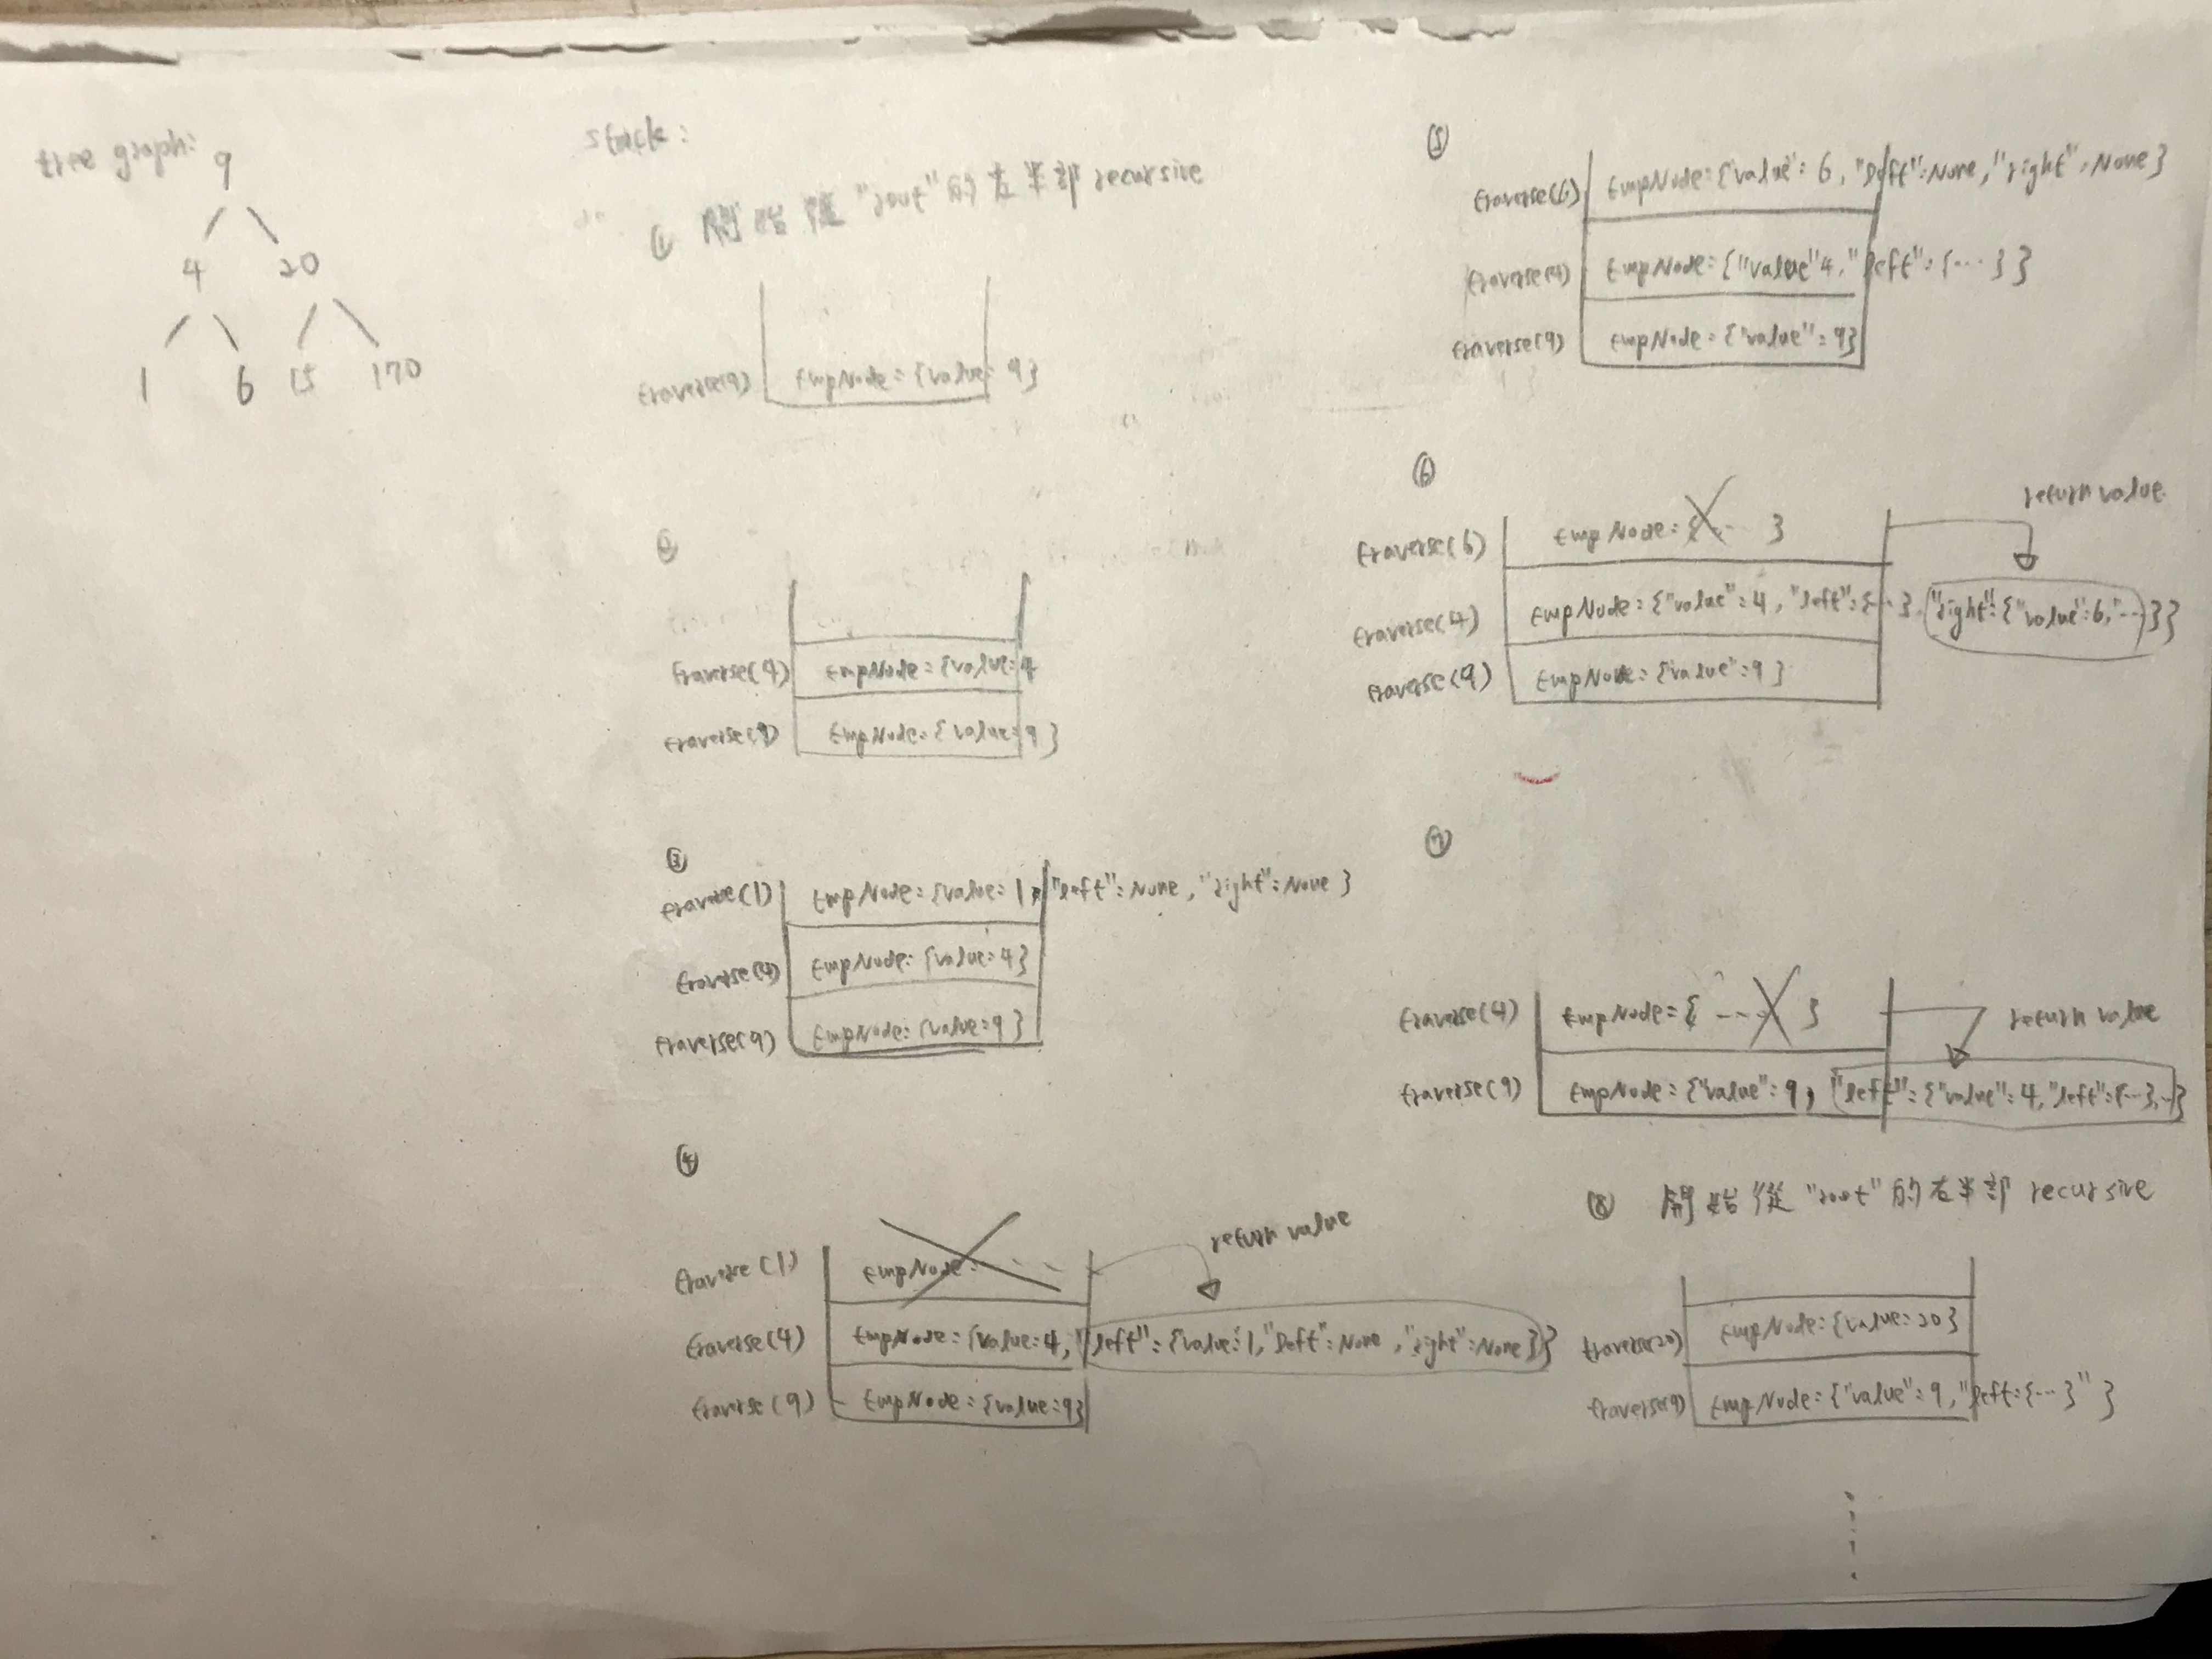 tree graph:
9
4 20
1 6 15 170
stack:
① 開始從 "root" 的左半部 recursive
traverse(9) tmpNode = {value: 9}
②
traverse(4) tmpNode = {value: 4
traverse(9) tmpNode = {value: 9}
③
traverse(1) tmpNode = {value: 1, "left": None, "right": None}
traverse(4) tmpNode: {value: 4}
traverse(9) tmpNode: {value: 9}
④
return value
traverse(1) tmpNode:
traverse(4) tmpNode = {value: 4, "left": {value: 1, "left": None, "right": None}}
traverse(9) tmpNode = {value: 9}
⑤
traverse(6) tmpNode: {"value": 6, "left": None, "right": None}
traverse(4) tmpNode: {"value" 4, "left": {...}}
traverse(9) tmpNode = {"value": 9}
⑥
return value
traverse(6) tmpNode: {... }
traverse(4) tmpNode: {"value": 4, "left": {...}, "right": {"value": 6, ...}}
traverse(9) tmpNode: {"value": 9}
⑦
traverse(4) tmpNode = { ... } return value
traverse(9) tmpNode = {"value": 9, "left": {"value": 4, "left": {...}, ..}
⑧ 開始從 "root" 的右半部 recursive
traverse(20) tmpNode: {value: 20}
traverse(9) tmpNode: {"value": 9, "left: {...}" }